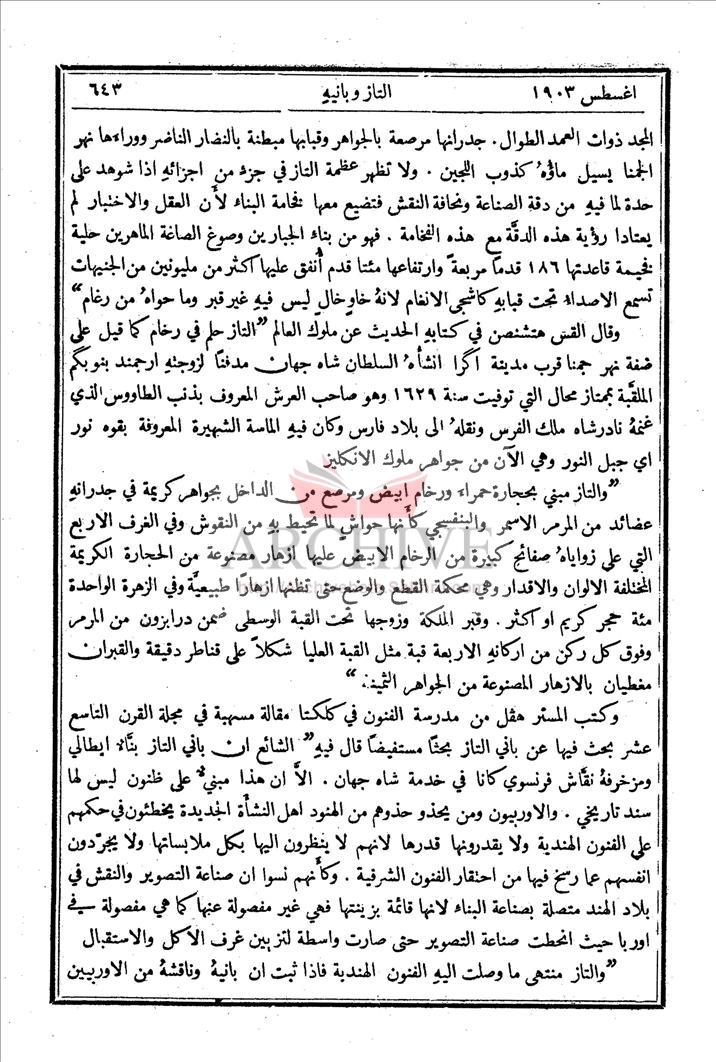 اغسطس ١٩٠٣ التاز وبانيهِ ٦٤٣
المجد ذوات العمد الطوال . جدرانها مرصعة بالجواهر وقبابها مبطنة بالنضار الناضر ووراءها نهر
الجمنا يسيل ماؤهُ كذوب اللجين . ولا تظهر عظمة التاز في جزء من اجزائهِ اذا شوهد على
حدة لما فيهِ من دقة الصناعة ونحافة النقش فتضيع معها فخامة البناء لأن العقل والاختبار لم
يعتادا رؤية هذه الدقَّة مع هذه الفخامة . فهو من بناء الجبارين وصوغ الصاغة الماهرين حلية
فخيمة قاعدتها ١٨٦ قدماً مربعة وارتفاعها مئتا قدم أُنفق عليها اكثر من مليونين من الجنيهات
تسمع الاصداء تحت قبابهِ كاشجى الانغام لانهُ خاوٍ خالٍ ليس فيهِ غير قبر وما حواهُ من رغام“
وقال القس هتشنصن في كتابهِ الحديث عن ملوك العالم ”التاز حلم في رخام كما قيل على
ضفة نهر جمنا قرب مدينة اگرا انشأهُ السلطان شاه جهان مدفناً لزوجتهِ ارجمند بنو بگم
الملقبة بممتاز محال التي توفيت سنة ١٦٢٩ وهو صاحب العرش المعروف بذنب الطاووس الذي
غنمهُ نادرشاه ملك الفرس ونقلهُ الى بلاد فارس وكان فيهِ الماسة الشهيرة المعروفة بقوه نور
اي جبل النور وهي الآن من جواهر ملوك الانكليز
”والتاز مبني بحجارة حمراء ورخام ابيض ومرصع من الداخل بجواهر كريمة في جدرانهِ
عضائد من المرمر الاسمر والبنفسجي كأنها حواشٍ لما تحيط بهِ من النقوش وفي الغرف الاربع
التي على زواياهُ صفائح كبيرة من الرخام الابيض عليها ازهار مصنوعة من الحجارة الكريمة
المختلفة الالوان والاقدار وهي محكمة القطع والوضع حتى تظنها ازهاراً طبيعيَّة وفي الزهرة الواحدة
مئة حجر كريم او اكثر . وقبر الملكة وزوجها تحت القبة الوسطى ضمن درابزون من المرمر
وفوق كل ركن من اركانهِ الاربعة قبة مثل القبة العليا شكلاً على قناطر دقيقة والقبران
مغطيان بالازهار المصنوعة من الجواهر الثمينة“
وكتب المستر هڤل من مدرسة الفنون في كلكتا مقالة مسهبة في مجلة القرن التاسع
عشر بحث فيها عن باني التاز بحثاً مستفيضاً قال فيهِ ”الشائع ان باني التاز بنَّاء ايطالي
ومزخرفهُ نقَّاش فرنسوي كانا في خدمة شاه جهان . الاَّ ان هذا مبنيٌّ على ظنون ليس لها
سند تاريخي . والاوربيون ومن يحذو حذوهم من الهنود اهل النشأة الجديدة يخطئون في حكمهم
على الفنون الهندية ولا يقدرونها قدرها لانهم لا ينظرون اليها بكل ملابساتها ولا يجرّدون
انفسهم عما رسخ فيها من احتقار الفنون الشرقية . وكأنهم نسوا ان صناعة التصوير والنقش في
بلاد الهند متصلة بصناعة البناء لانها قائمة بزينتها فهي غير مفصولة عنها كما هي مفصولة في
اوربا حيث انحطت صناعة التصوير حتى صارت واسطة لتزيين غرف الاكل والاستقبال
”والتاز منتهى ما وصلت اليهِ الفنون الهندية فاذا ثبت ان بانيهُ وناقشهُ من الاوربيين
ARCHIVE